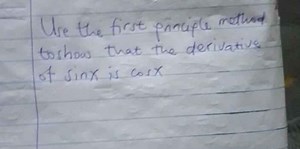 Use the first principle method
to show that the derivative
of sinx is cosx